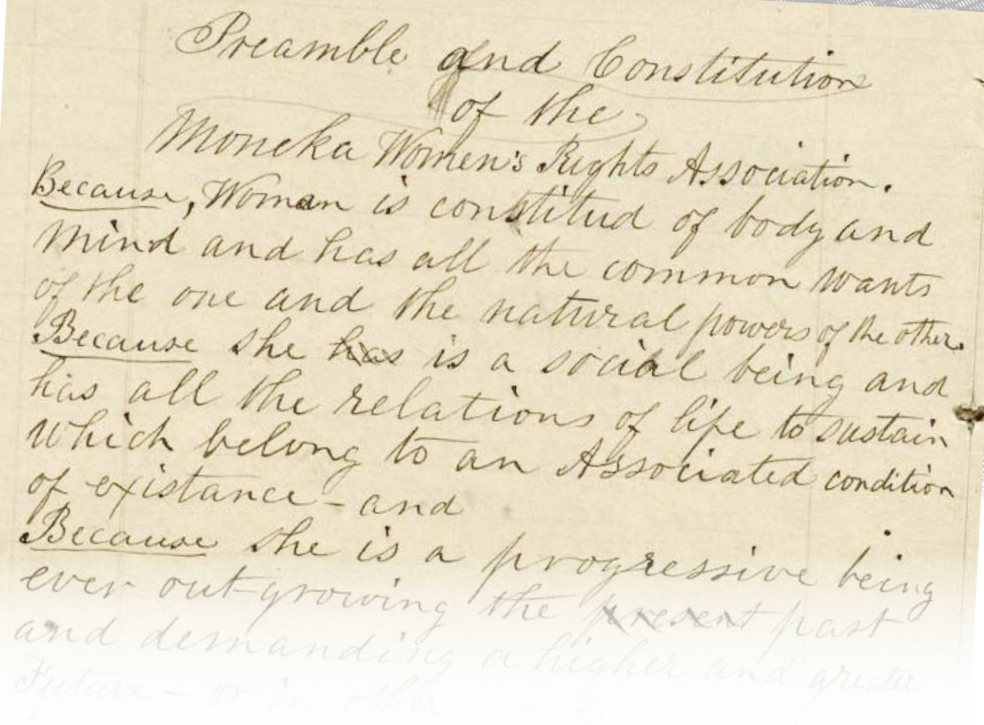 Preamble and Constitution
of the
Moneka Women's Rights Association.
Because, Woman is constitud of body and
mind and has all the common wants
of the one and the natural powers of the other.
Because she has is a social being and
has all the relations of life to sustain
which belong to an Associated condition
of existance - and
Because she is a progressive being
ever out-growing the present past
and demanding a higher and greater
Future - or in other words